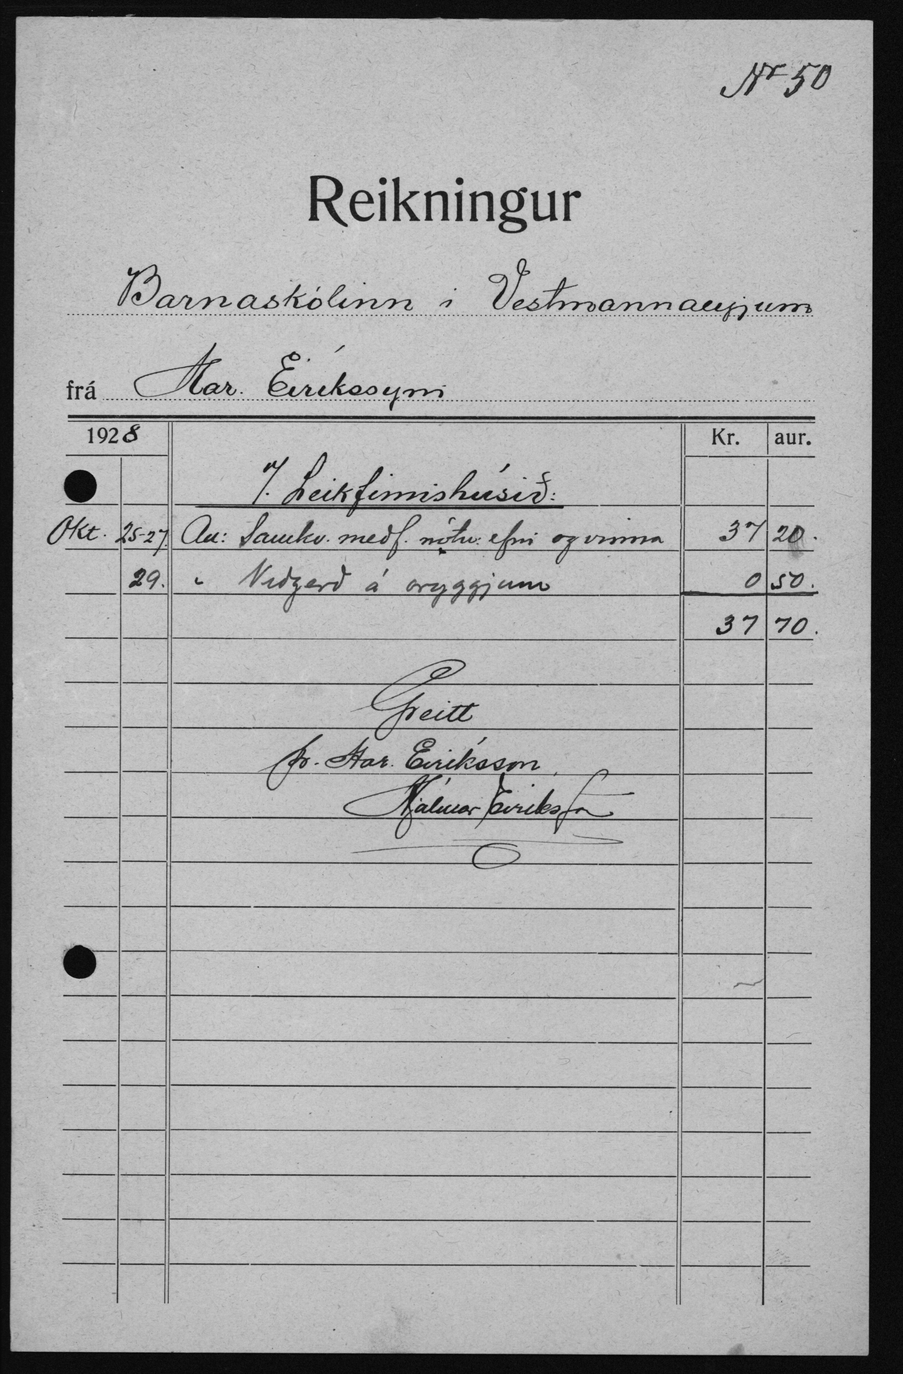 Nr 50
Reikningur
Barnaskólinn í Vestmannaeyjum
frá Har. Eiríkssyni
1928 Kr. aur.
7. Leikfimishúsið:
Okt. 25-27. An: Samkv. medf. nótu: efni og vinna 37 20.
29. " Vidgerð á öryggjum 0 50.
37 70.
Greitt
pr. Har. Eiríksson
Hjálmar Eiríksson